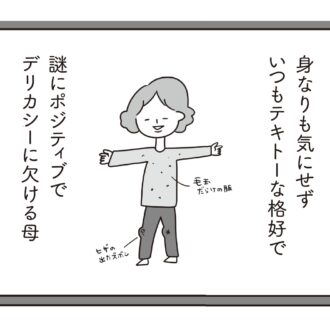 身なりも気にせず
いつもテキトーな格好で
謎にポジティブで
デリカシーに欠ける母
毛玉
だらけの服
ヒザの
出たズボン